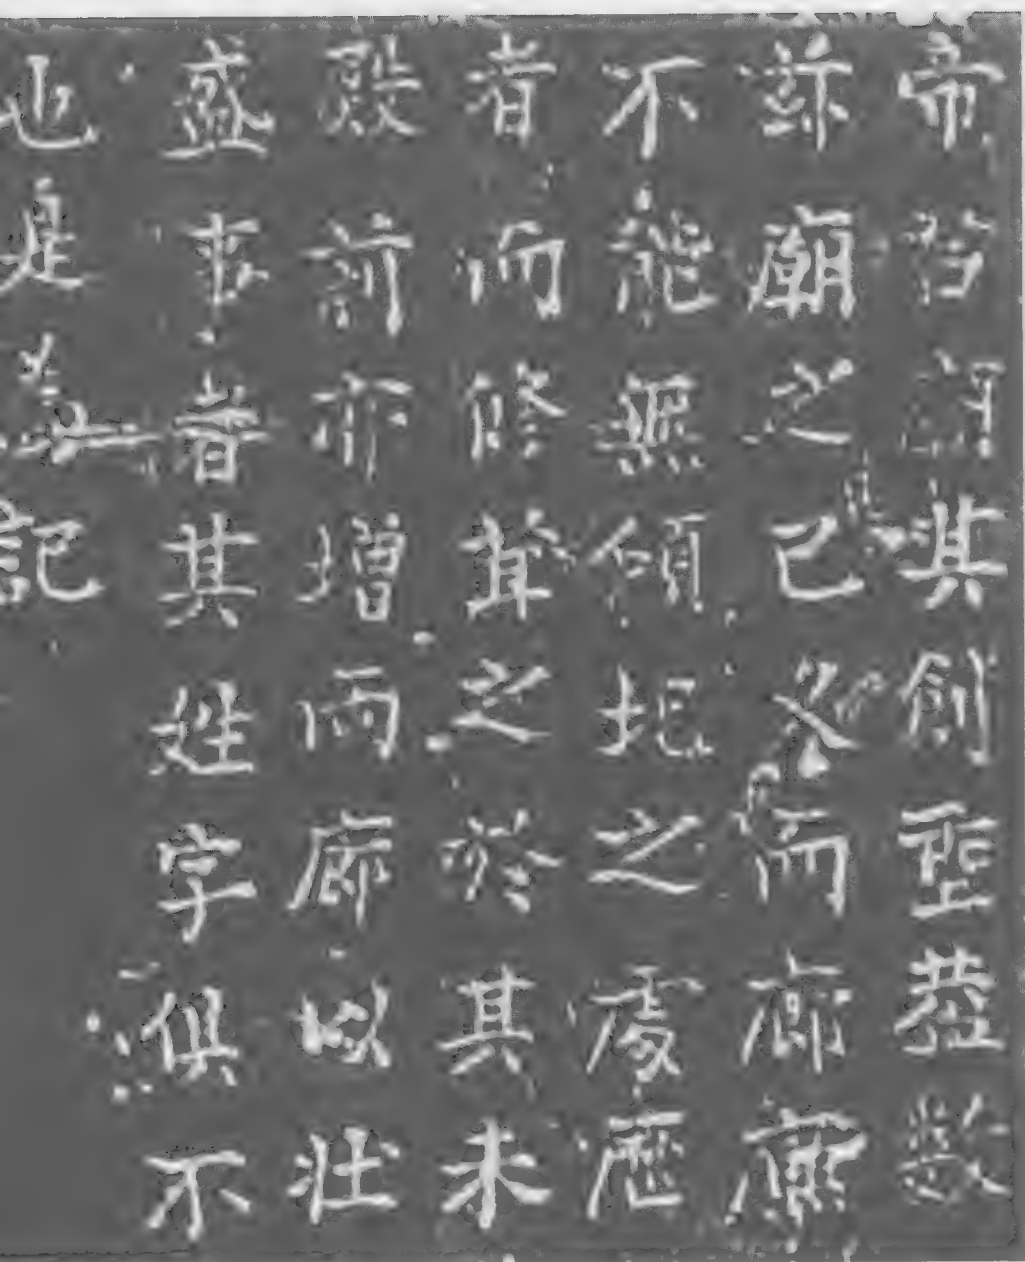 帝其創數
茲廟之已久而廊廡
不能無傾圮之處歷
者而修葺之於其未
殿前亦增兩廊以壯
盛事者其姓字俱不
也是為記